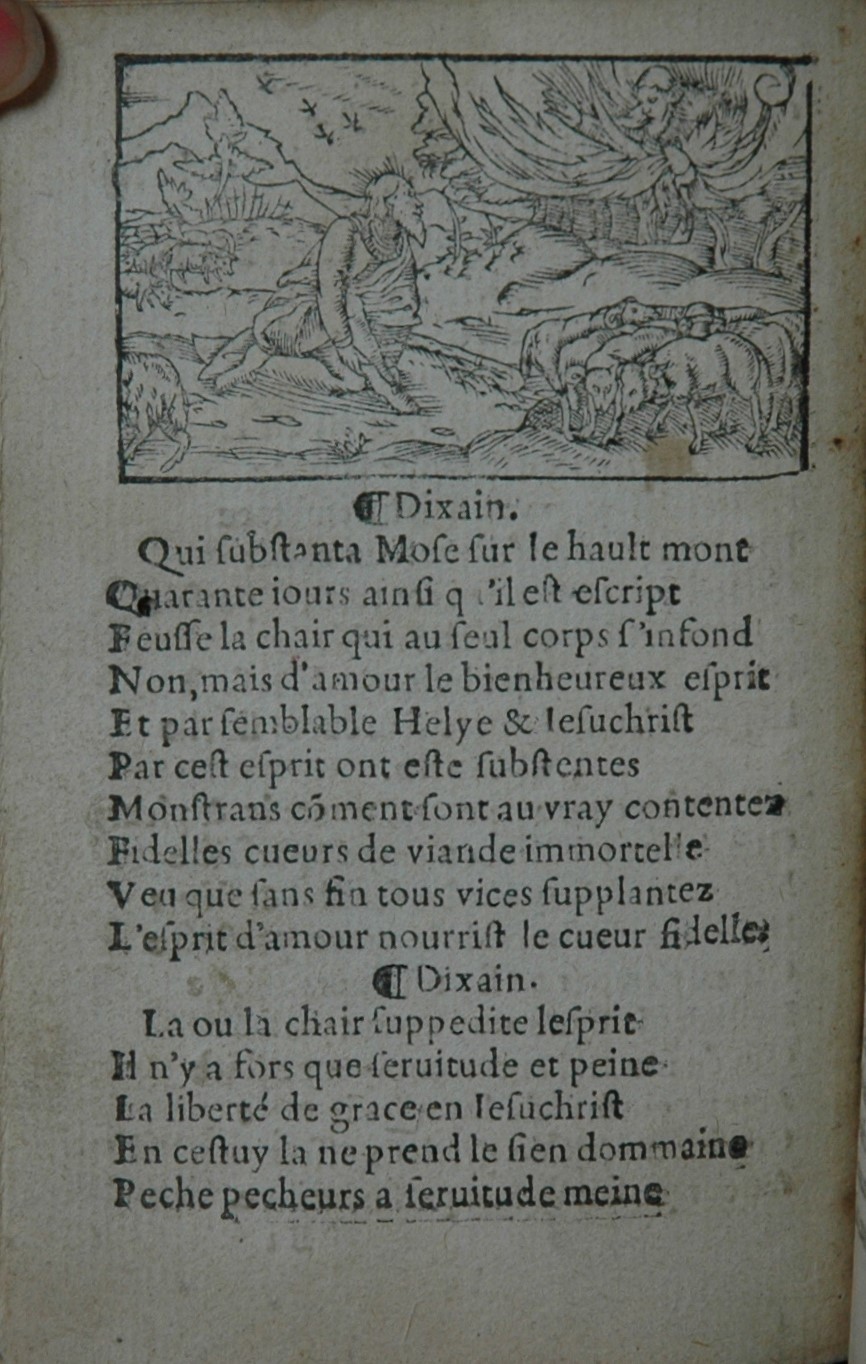 ¶ Dixain.
Qui ſubſtanta Moſe ſur le hault mont
Quarante iours ainſi qu'il eſt eſcript
Feuſſe la chair qui au ſeul corps ſ'infond
Non, mais d'amour le bienheureux eſprit
Et par ſemblable Helye & Ieſuchriſt
Par ceſt eſprit ont eſte ſubſtentes
Monſtrans cōment ſont au vray contentez
Fidelles cueurs de viande immortelle
Veu que ſans fin tous vices ſupplantez
L'eſprit d'amour nourriſt le cueur fidelle,
¶ Dixain.
La ou la chair ſuppedite leſprit
Il n'y a fors que ſeruitude et peine
La liberté de grace en Ieſuchriſt
En ceſtuy la ne prend le ſien dommaine
Peche pecheurs a ſeruitude meine